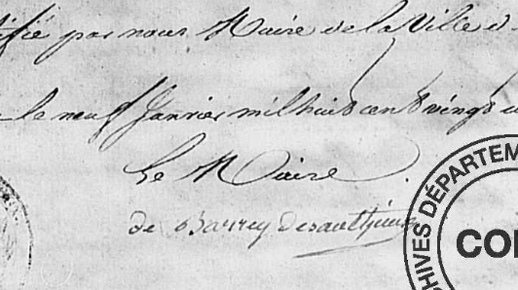 ifié par nous Maire de la Ville d
le neuf Janvier mil huit cent vingt u
Le Maire.
de Barrey
ARCHIVES DÉPARTEM
CO